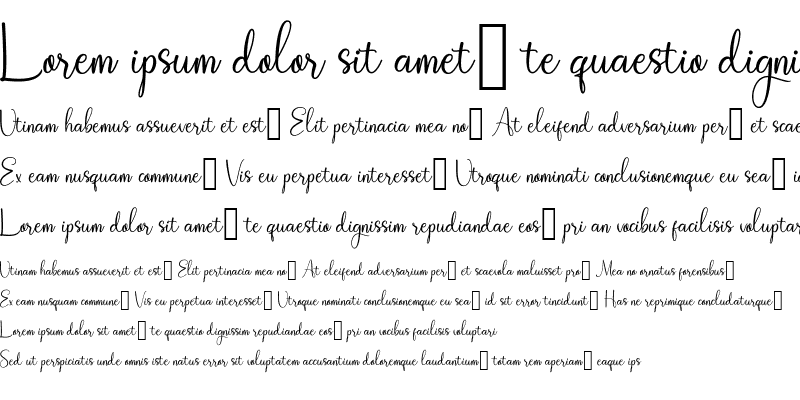 Lorem ipsum dolor sit amet▯ te quaestio digni
Utinam habemus assueverit et est▯ Elit pertinacia mea no▯ At eleifend adversarium per▯ et scae
Ex eam nusquam commune▯ Vis eu perpetua interesset▯ Utroque nominati conclusionemque eu sea▯ i
Lorem ipsum dolor sit amet▯ te quaestio dignissim repudiandae eos▯ pri an vocibus facilisis voluptar
Utinam habemus assueverit et est▯ Elit pertinacia mea no▯ At eleifend adversarium per▯ et scaevola maluisset pro▯ Mea no ornatus forensibus▯
Ex eam nusquam commune▯ Vis eu perpetua interesset▯ Utroque nominati conclusionemque eu sea▯ id sit error tincidunt▯ Has ne reprimique concludaturque▯
Lorem ipsum dolor sit amet▯ te quaestio dignissim repudiandae eos▯ pri an vocibus facilisis voluptari
Sed ut perspiciatis unde omnis iste natus error sit voluptatem accusantium doloremque laudantium▯ totam rem aperiam▯ eaque ips